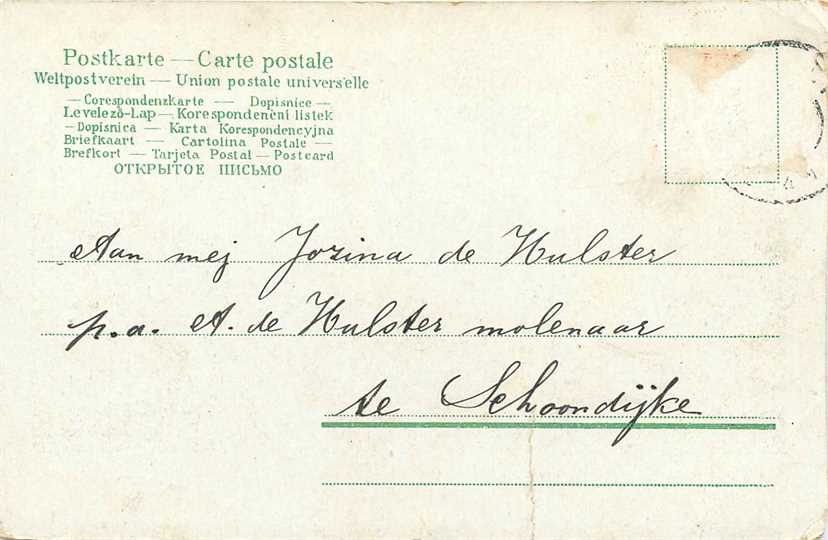 Postkarte — Carte postale
Weltpostverein — Union postale universelle
— Corespondenzkarte — Dopisnice —
Levelező-Lap — Korespondenční listek
— Dopisnica — Karta Korespondencyjna
Briefkaart — Cartolina Postale —
Brefkort — Tarjeta Postal — Postcard
ОТКРЫТОЕ ПИСЬМО
Aan mej Jozina de Hulster
p.a. A. de Hulster molenaar
te Schoondijke